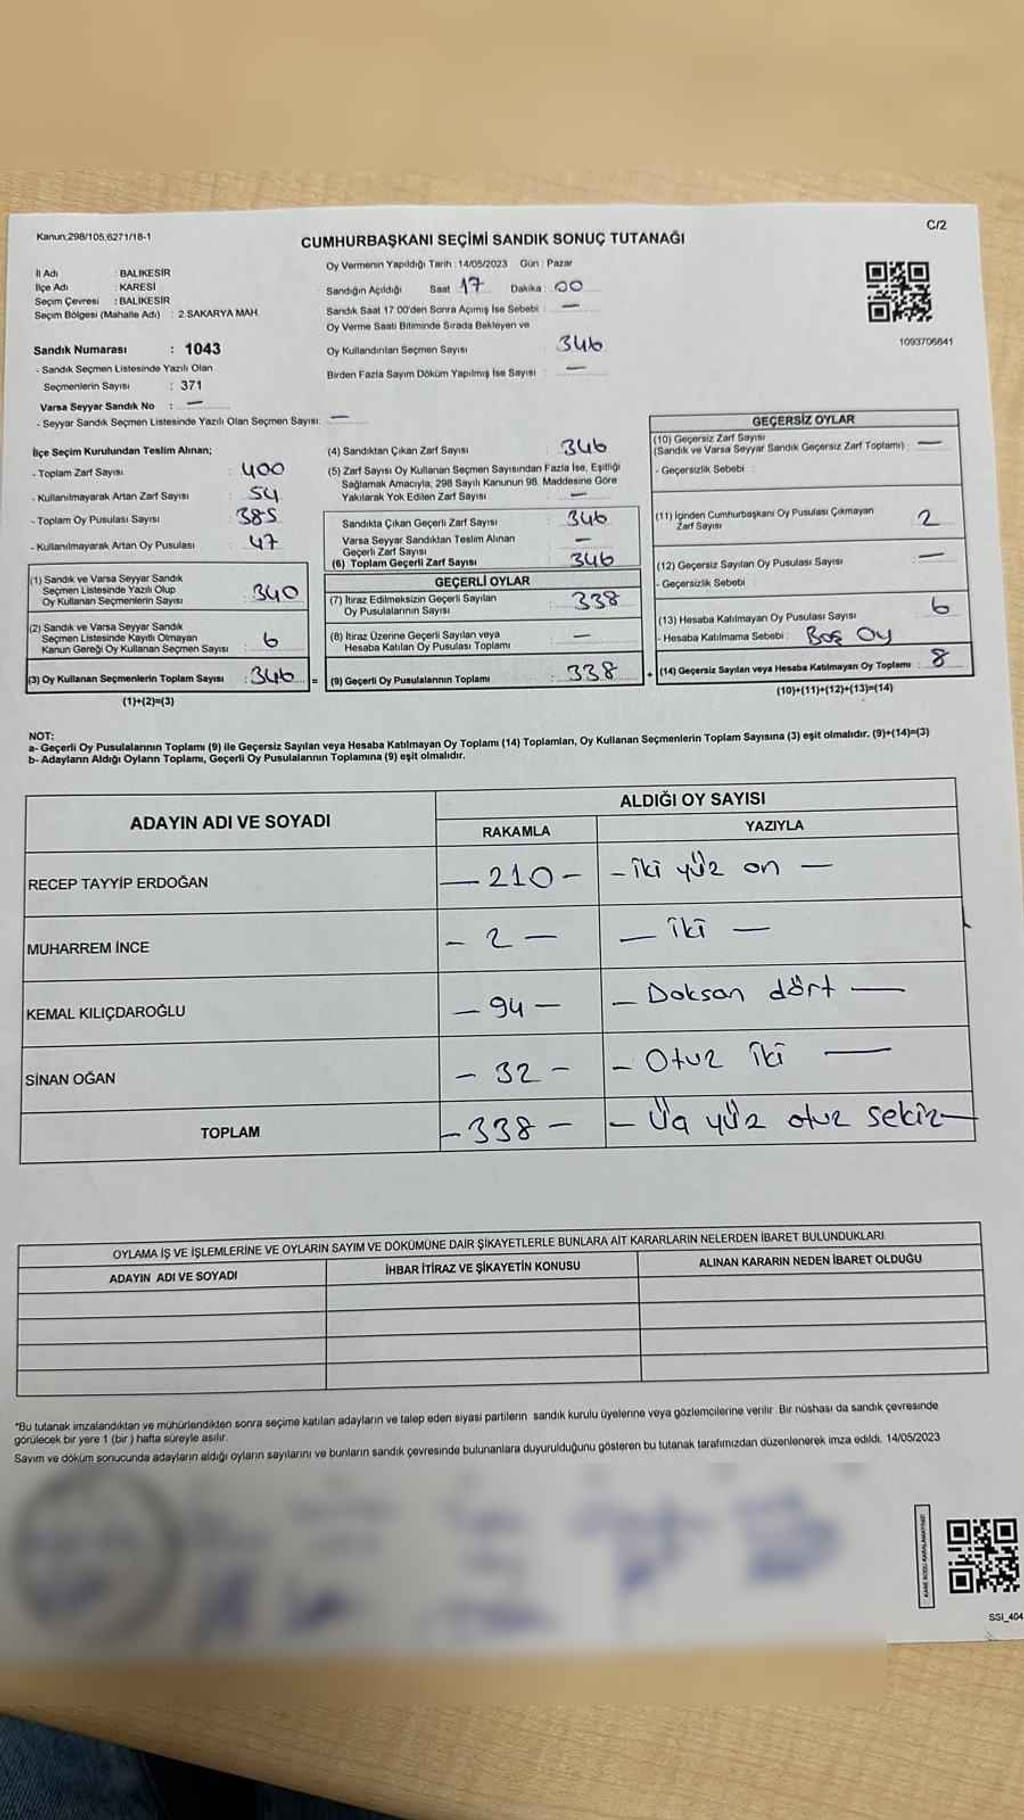 Kanun,298/105,6271/18-1
C/2
CUMHURBAŞKANI SEÇİMİ SANDIK SONUÇ TUTANAĞI
İl Adı : BALIKESİR
İlçe Adı : KARESİ
Seçim Çevresi : BALIKESİR
Seçim Bölgesi (Mahalle Adı) : 2.SAKARYA MAH.
Sandık Numarası : 1043
- Sandık Seçmen Listesinde Yazılı Olan
Seçmenlerin Sayısı : 371
Varsa Seyyar Sandık No : —
- Seyyar Sandık Seçmen Listesinde Yazılı Olan Seçmen Sayısı: —
Oy Vermenin Yapıldığı Tarih : 14/05/2023 Gün : Pazar
Sandığın Açıldığı Saat 17 Dakika : 00
Sandık Saat 17:00'den Sonra Açımış İse Sebebi : —
Oy Verme Saati Bitiminde Sırada Bekleyen ve
Oy Kullandırılan Seçmen Sayısı 346
Birden Fazla Sayım Döküm Yapılmış İse Sayısı : —
1093706841
İlçe Seçim Kurulundan Teslim Alınan;
- Toplam Zarf Sayısı : 400
- Kullanılmayarak Artan Zarf Sayısı : 54
- Toplam Oy Pusulası Sayısı : 385
- Kullanılmayarak Artan Oy Pusulası : 47
(1) Sandık ve Varsa Seyyar Sandık
Seçmen Listesinde Yazılı Olup
Oy Kullanan Seçmenlerin Sayısı : 340
(2) Sandık ve Varsa Seyyar Sandık
Seçmen Listesinde Kayıtlı Olmayan
Kanun Gereği Oy Kullanan Seçmen Sayısı : 6
(3) Oy Kullanan Seçmenlerin Toplam Sayısı : 346 =
(1)+(2)=(3)
(4) Sandıktan Çıkan Zarf Sayısı : 346
(5) Zarf Sayısı Oy Kullanan Seçmen Sayısından Fazla İse, Eşitliği
Sağlamak Amacıyla, 298 Sayılı Kanunun 98. Maddesine Göre
Yakılarak Yok Edilen Zarf Sayısı : —
Sandıkta Çıkan Geçerli Zarf Sayısı : 346
Varsa Seyyar Sandıktan Teslim Alınan
Geçerli Zarf Sayısı : —
(6) Toplam Geçerli Zarf Sayısı : 346
GEÇERLİ OYLAR
(7) İtiraz Edilmeksizin Geçerli Sayılan
Oy Pusulalarının Sayısı : 338
(8) İtiraz Üzerine Geçerli Sayılan veya
Hesaba Katılan Oy Pusulası Toplamı : —
(9) Geçerli Oy Pusulalarının Toplamı : 338 +
GEÇERSİZ OYLAR
(10) Geçersiz Zarf Sayısı
(Sandık ve Varsa Seyyar Sandık Geçersiz Zarf Toplamı) : —
- Geçersizlik Sebebi :
(11) İçinden Cumhurbaşkanı Oy Pusulası Çıkmayan
Zarf Sayısı : 2
(12) Geçersiz Sayılan Oy Pusulası Sayısı : —
- Geçersizlik Sebebi
(13) Hesaba Katılmayan Oy Pusulası Sayısı : 6
- Hesaba Katılmama Sebebi : Boş Oy
(14) Geçersiz Sayılan veya Hesaba Katılmayan Oy Toplamı : 8
(10)+(11)+(12)+(13)=(14)
NOT:
a- Geçerli Oy Pusulalarının Toplamı (9) ile Geçersiz Sayılan veya Hesaba Katılmayan Oy Toplamı (14) Toplamları, Oy Kullanan Seçmenlerin Toplam Sayısına (3) eşit olmalıdır. (9)+(14)=(3)
b- Adayların Aldığı Oyların Toplamı, Geçerli Oy Pusulalarının Toplamına (9) eşit olmalıdır.
ADAYIN ADI VE SOYADI
ALDIĞI OY SAYISI
RAKAMLA YAZIYLA
RECEP TAYYİP ERDOĞAN — 210 — — iki yüz on —
MUHARREM İNCE — 2 — — iki —
KEMAL KILIÇDAROĞLU — 94 — — Doksan dört —
SİNAN OĞAN — 32 — — Otuz iki —
TOPLAM — 338 — — Üç yüz otuz sekiz —
OYLAMA İŞ VE İŞLEMLERİNE VE OYLARIN SAYIM VE DÖKÜMÜNE DAİR ŞİKAYETLERLE BUNLARA AİT KARARLARIN NELERDEN İBARET BULUNDUKLARI
ADAYIN ADI VE SOYADI İHBAR İTİRAZ VE ŞİKAYETİN KONUSU ALINAN KARARIN NEDEN İBARET OLDUĞU
*Bu tutanak imzalandıktan ve mühürlendikten sonra seçime katılan adayların ve talep eden siyasi partilerin sandık kurulu üyelerine veya gözlemcilerine verilir. Bir nüshası da sandık çevresinde
görülecek bir yere 1 (bir) hafta süreyle asılır.
Sayım ve döküm sonucunda adayların aldığı oyların sayılarını ve bunların sandık çevresinde bulunanlara duyurulduğunu gösteren bu tutanak tarafımızdan düzenlenerek imza edildi. 14/05/2023
SSI_404